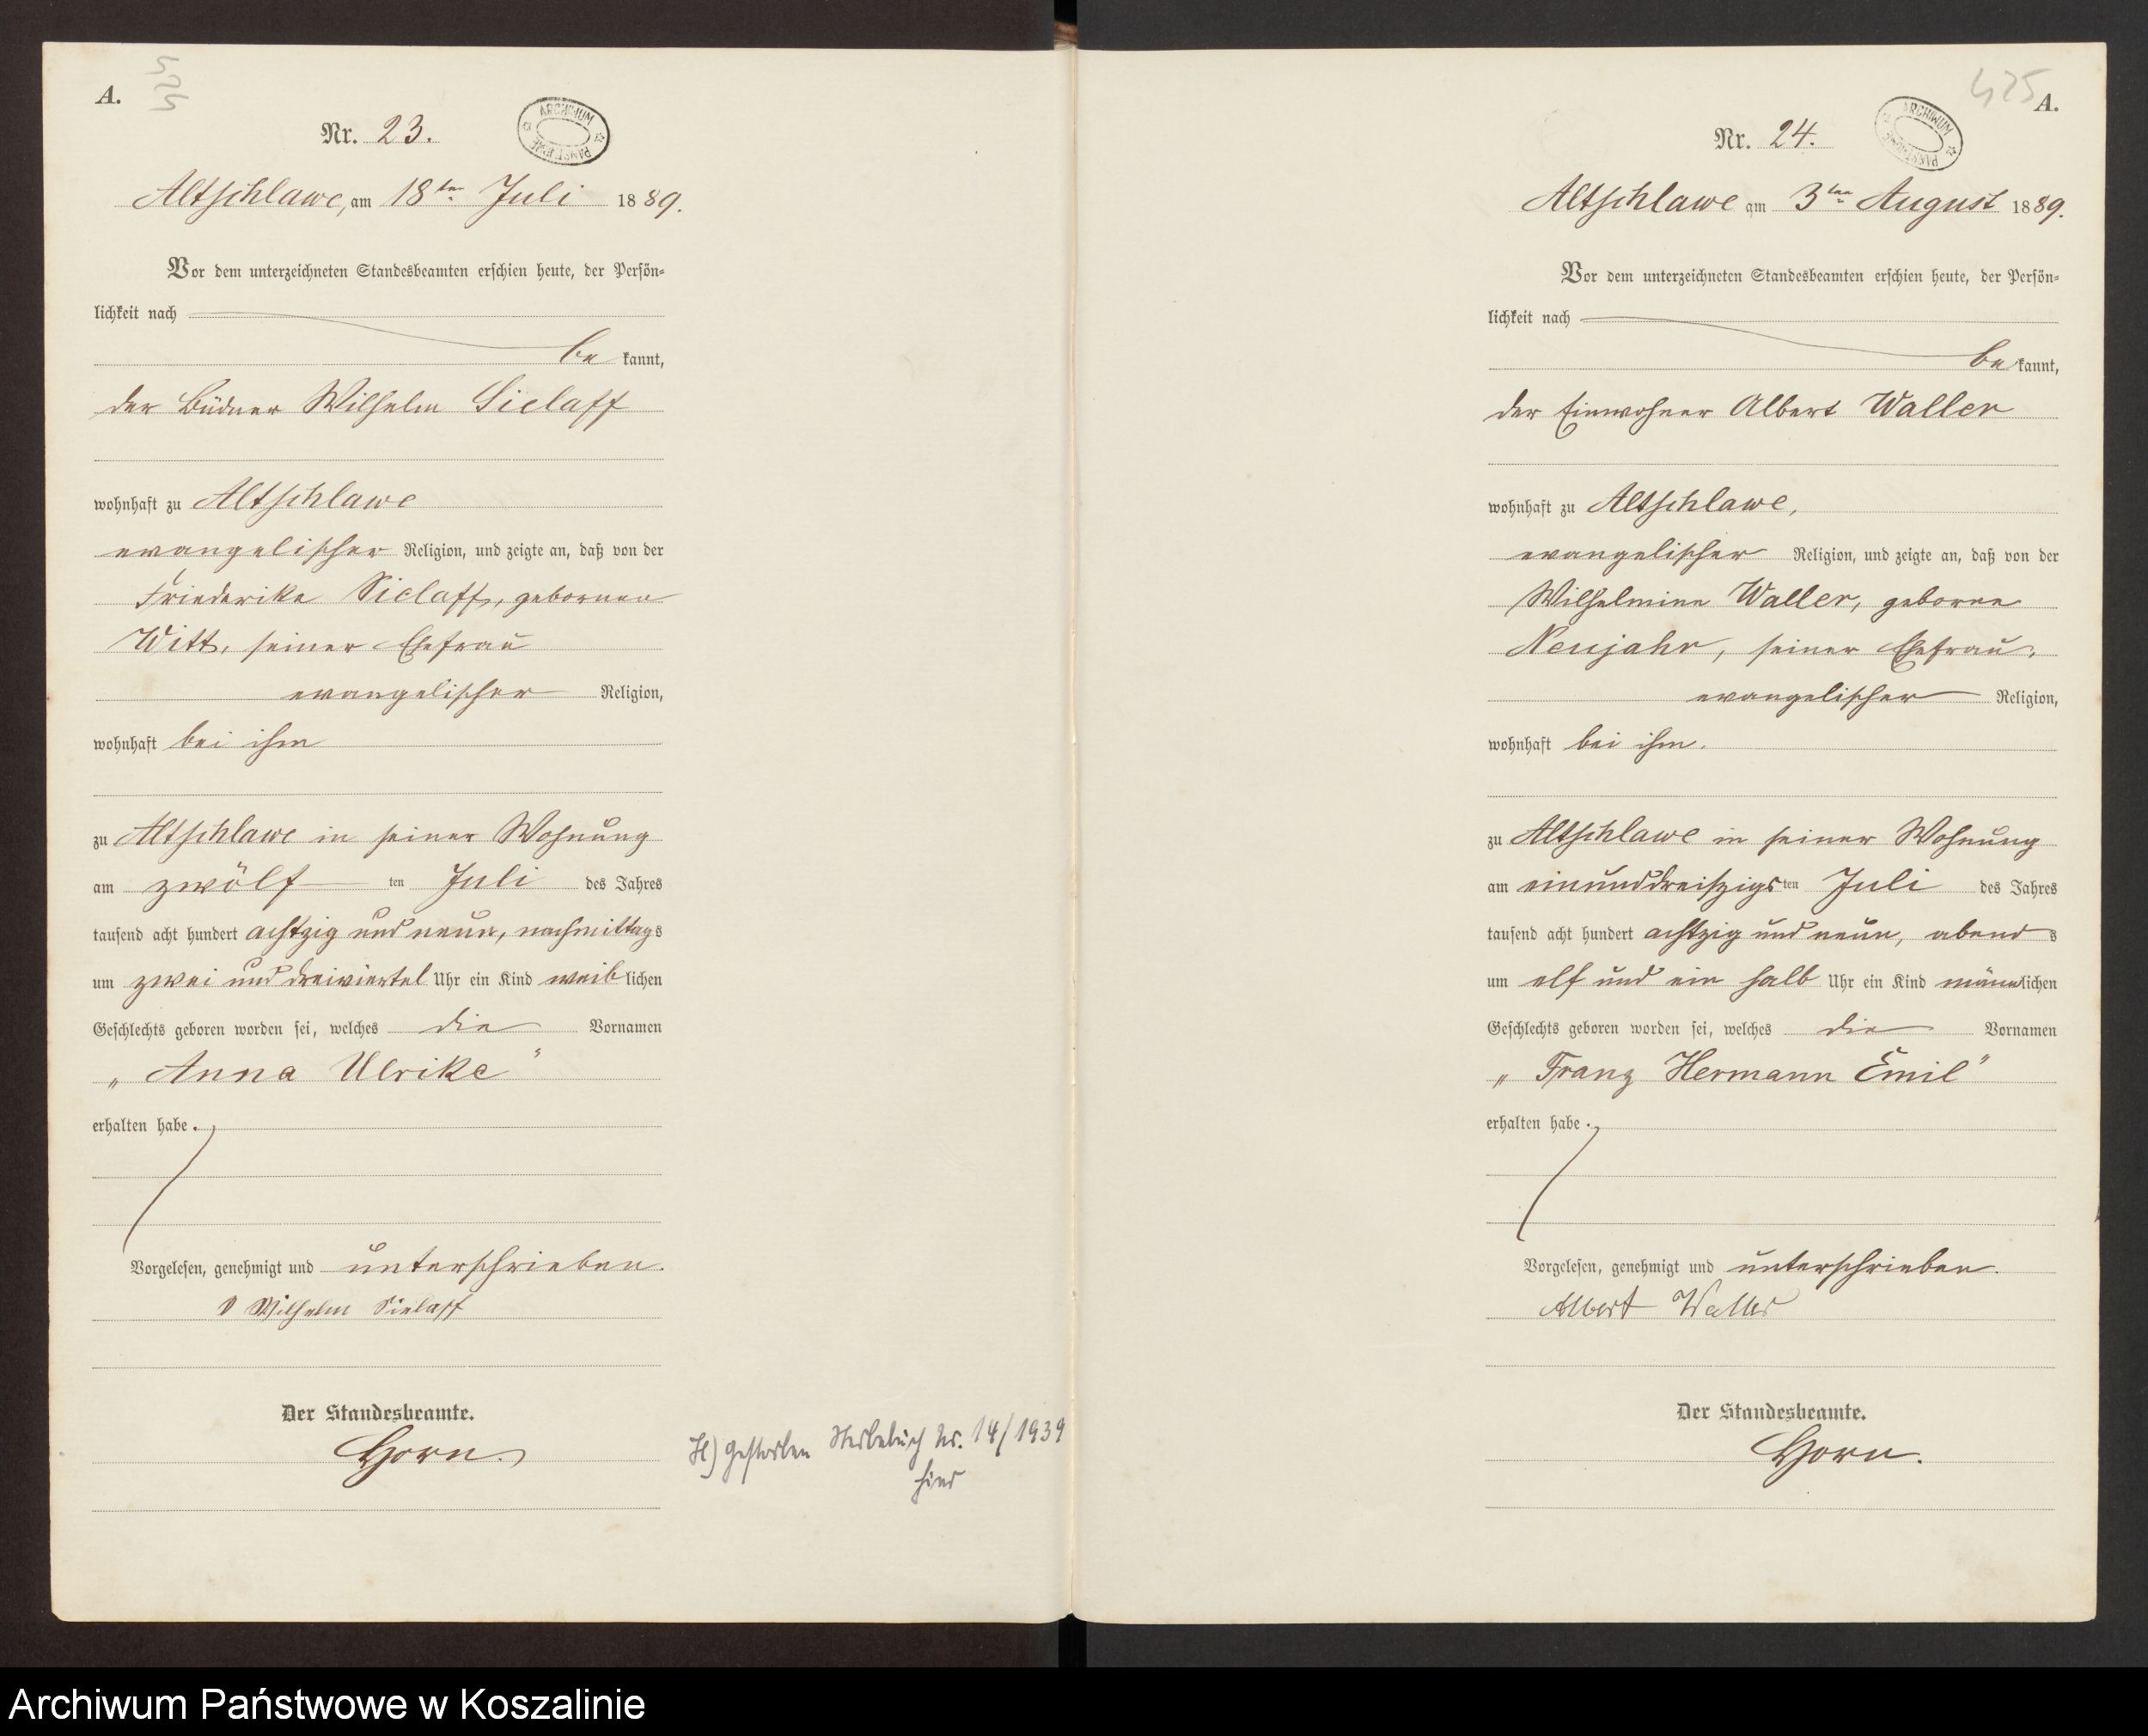 A.
Nr. 23.
ARCHIWUM
PAŃSTWOWE
Altschlawe, am 18ten Juli 1889.
Vor dem unterzeichneten Standesbeamten erschien heute, der Persön-
lichkeit nach
be kannt,
der Büdner Wilhelm Sielaff
wohnhaft zu Altschlawe
evangelischer Religion, und zeigte an, daß von der
Friederike Sielaff, gebornen
Witt, seiner Ehefrau
evangelischer Religion,
wohnhaft bei ihm
zu Altschlawe in seiner Wohnung
am zwölf ten Juli des Jahres
tausend acht hundert achtzig und neun, nachmittags
um zwei und dreiviertel Uhr ein Kind weiblichen
Geschlechts geboren worden sei, welches die Vornamen
„Anna Ulrike“
erhalten habe.
Vorgelesen, genehmigt und unterschrieben.
Wilhelm Sielaff
Der Standesbeamte.
Horn.
H) Gestorben Sterbebuch Nr. 14/1939
hier
425
A.
Nr. 24.
ARCHIWUM
PAŃSTWOWE
Altschlawe am 3ten August 1889.
Vor dem unterzeichneten Standesbeamten erschien heute, der Persön-
lichkeit nach
be kannt,
der Einwohner Albert Waller
wohnhaft zu Altschlawe,
evangelischer Religion, und zeigte an, daß von der
Wilhelmine Waller, geborne
Neujahr, seiner Ehefrau,
evangelischer Religion,
wohnhaft bei ihm.
zu Altschlawe in seiner Wohnung
am einunddreiszigsten Juli des Jahres
tausend acht hundert achtzig und neun, abends
um elf und ein halb Uhr ein Kind männlichen
Geschlechts geboren worden sei, welches die Vornamen
„Franz Hermann Emil“
erhalten habe.
Vorgelesen, genehmigt und unterschrieben.
Albert Waller
Der Standesbeamte.
Horn.
Archiwum Państwowe w Koszalinie